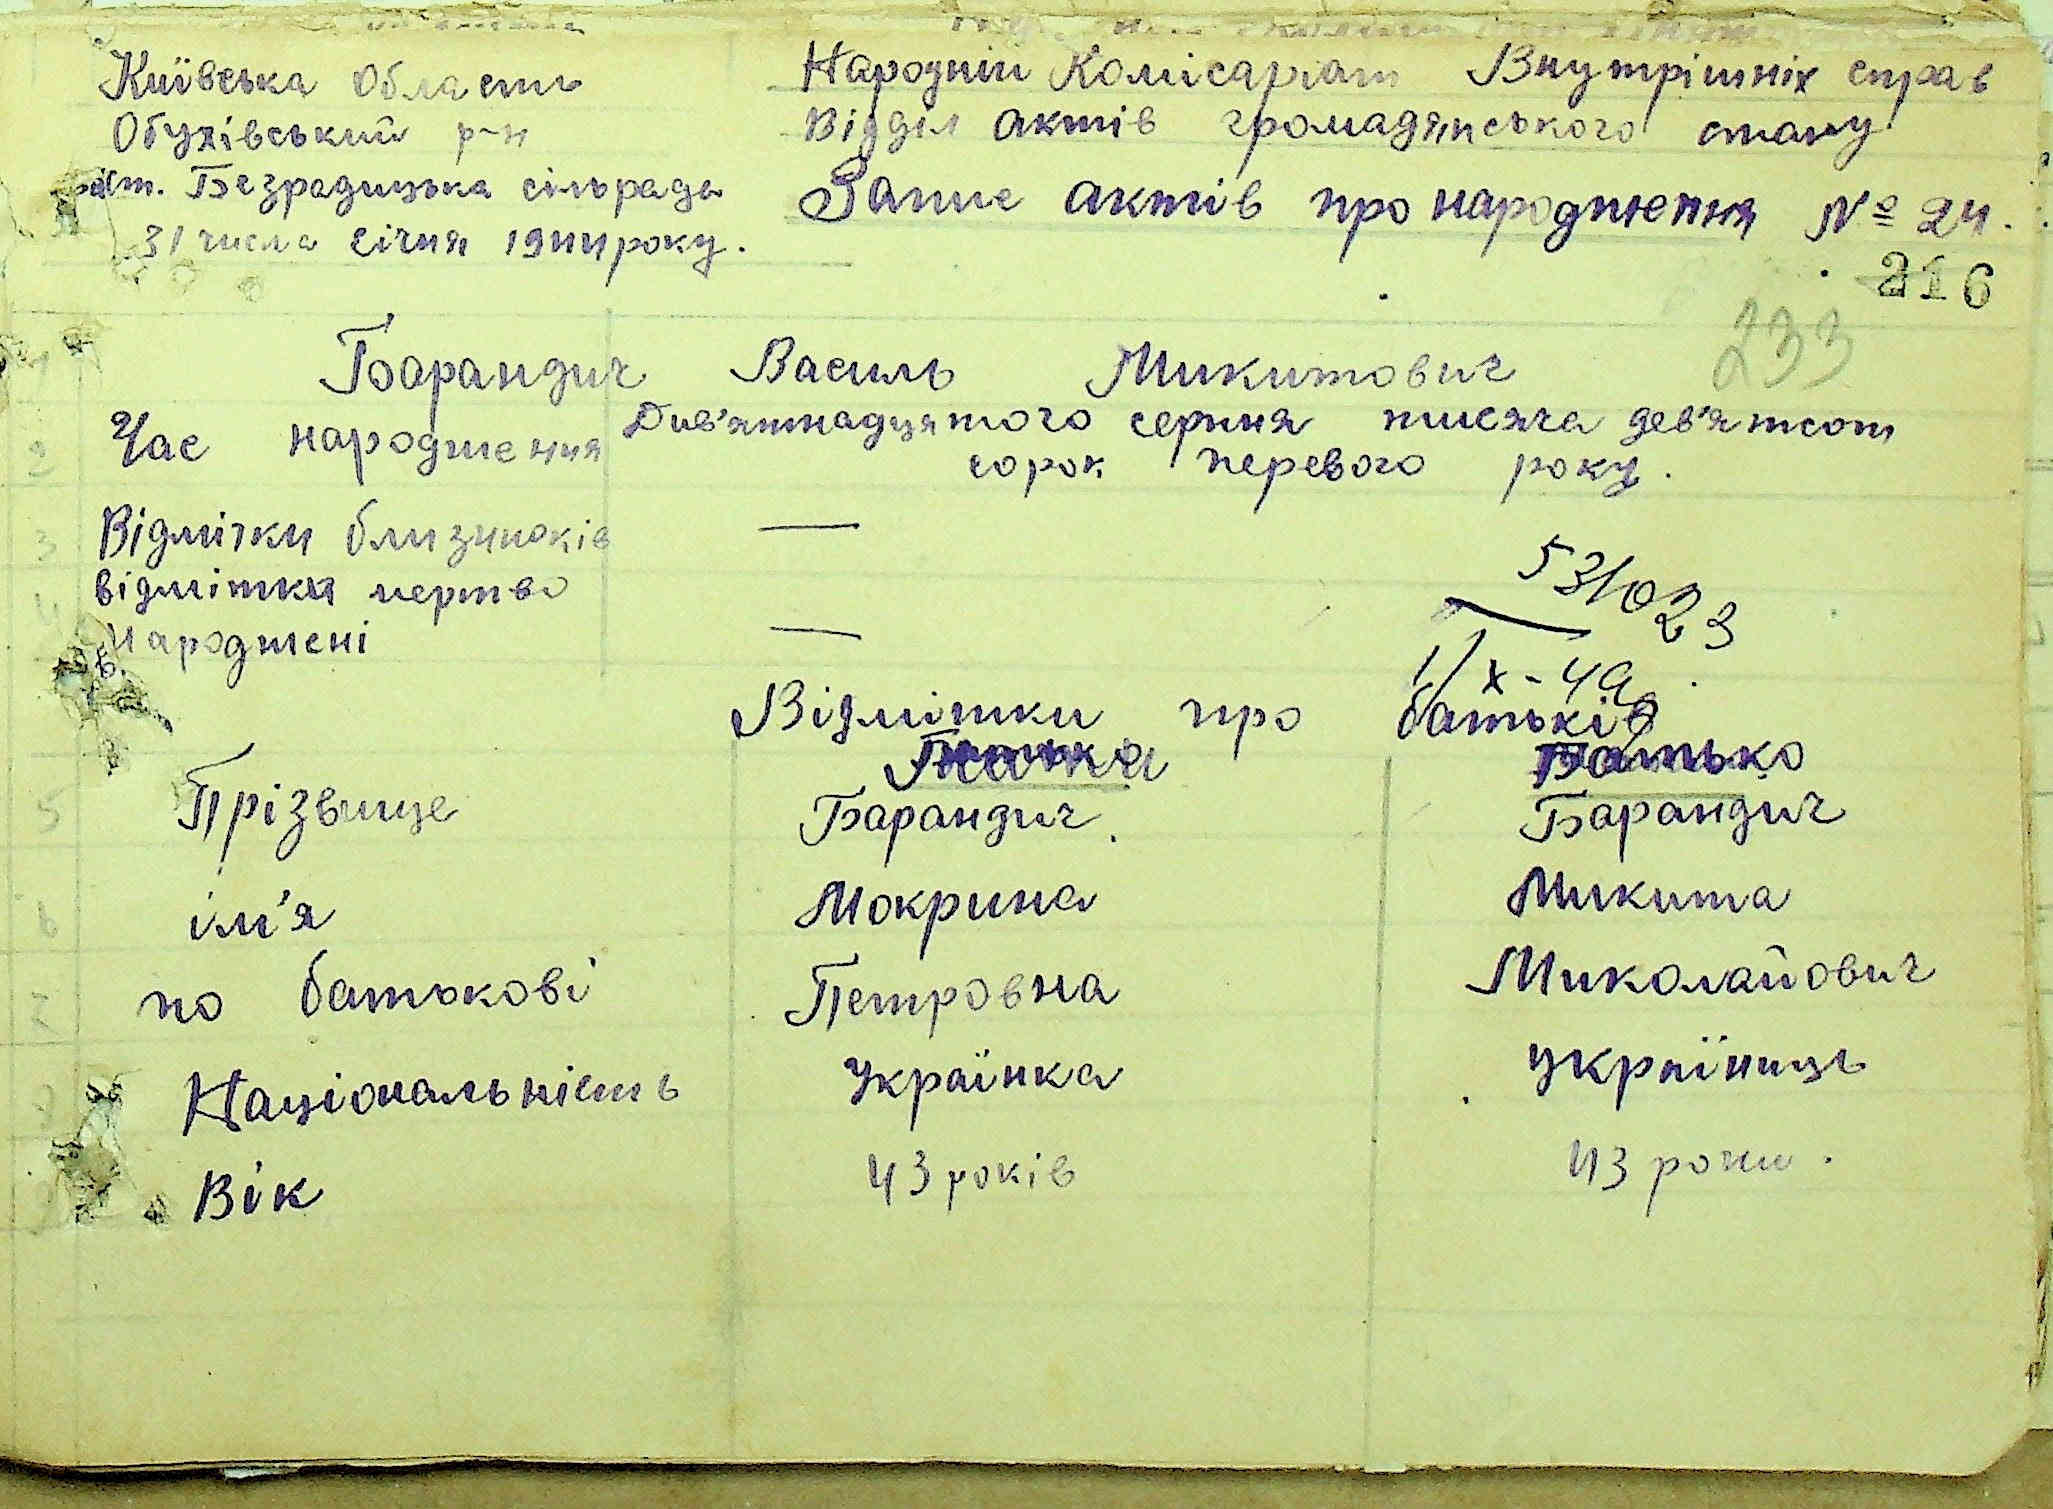 Київська Область
Обухівський р-н
Безрадицька сільрада
31 числа січня 1944 року.
Народній Комісаріат Внутрішніх справ
Відділ актів громадянського стану
Запис актів про народження № 24.
216
233
Барандич Василь Микитович
Час народження Див'ятнадцятого серпня тисяча дев'ятсот
сорок первого року.
Відмітки близнюків —
відмітки мертво
народжені —
531023
1/X-49
Відмітки про батьків
Батько
Прізвище Барандич. Барандич
ім'я Мокрина Микита
по батькові Петровна Миколайович
Національність Українка Українець
Вік 43 років 43 роки.